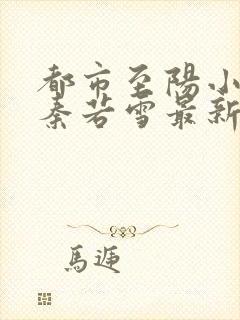 都市至陽小
秦若雪最新
馬遞